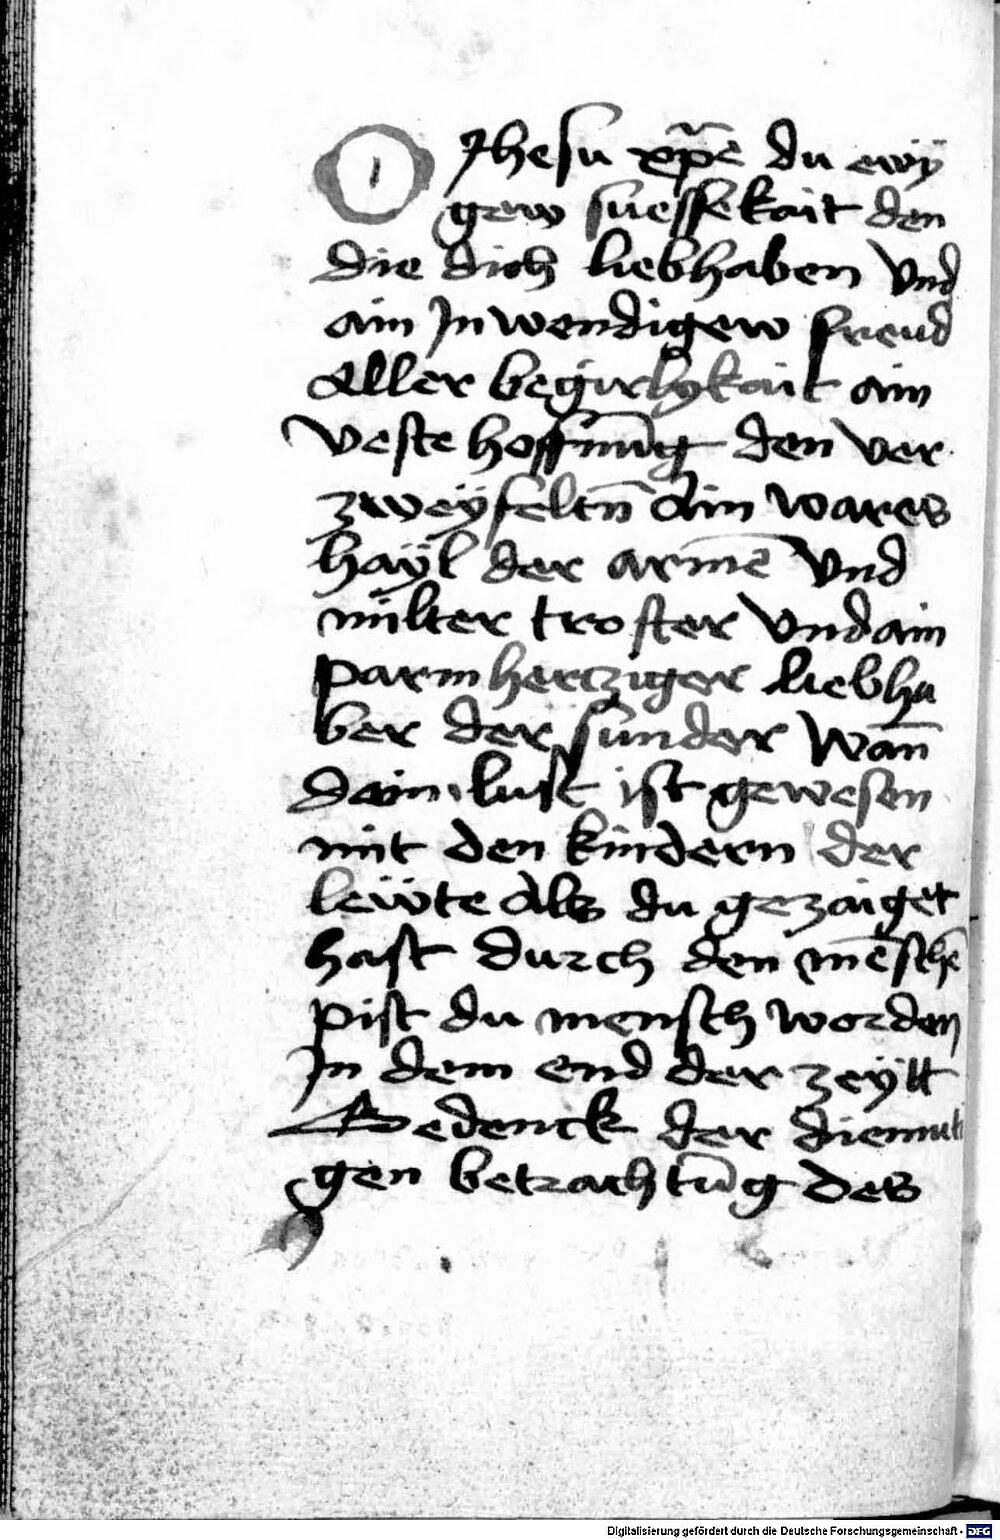 O Jhesu xp̄e du ewÿ
gew suessekait den
die dich liebhaben vnd
ain Jnwendigew freud
Aller begirlykait ain
veste hoffnūg den ver
zweÿfeltn̄ Ain wares
haÿl der armē vnd
milter troster vnd ain
parmhercziger liebha
ber der sunder Wan̄
dain lust ist gewesen
mit den kindern der
leẅte Als du gezaiget
hast durch den mēschē
pist du mensch worden
Jn dem end der zeÿtt
Gedenck der diemuti
gen betrachtūg des
Digitalisierung gefördert durch die Deutsche Forschungsgemeinschaft - DFG